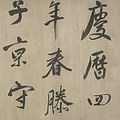 慶曆四
年春滕
子京守